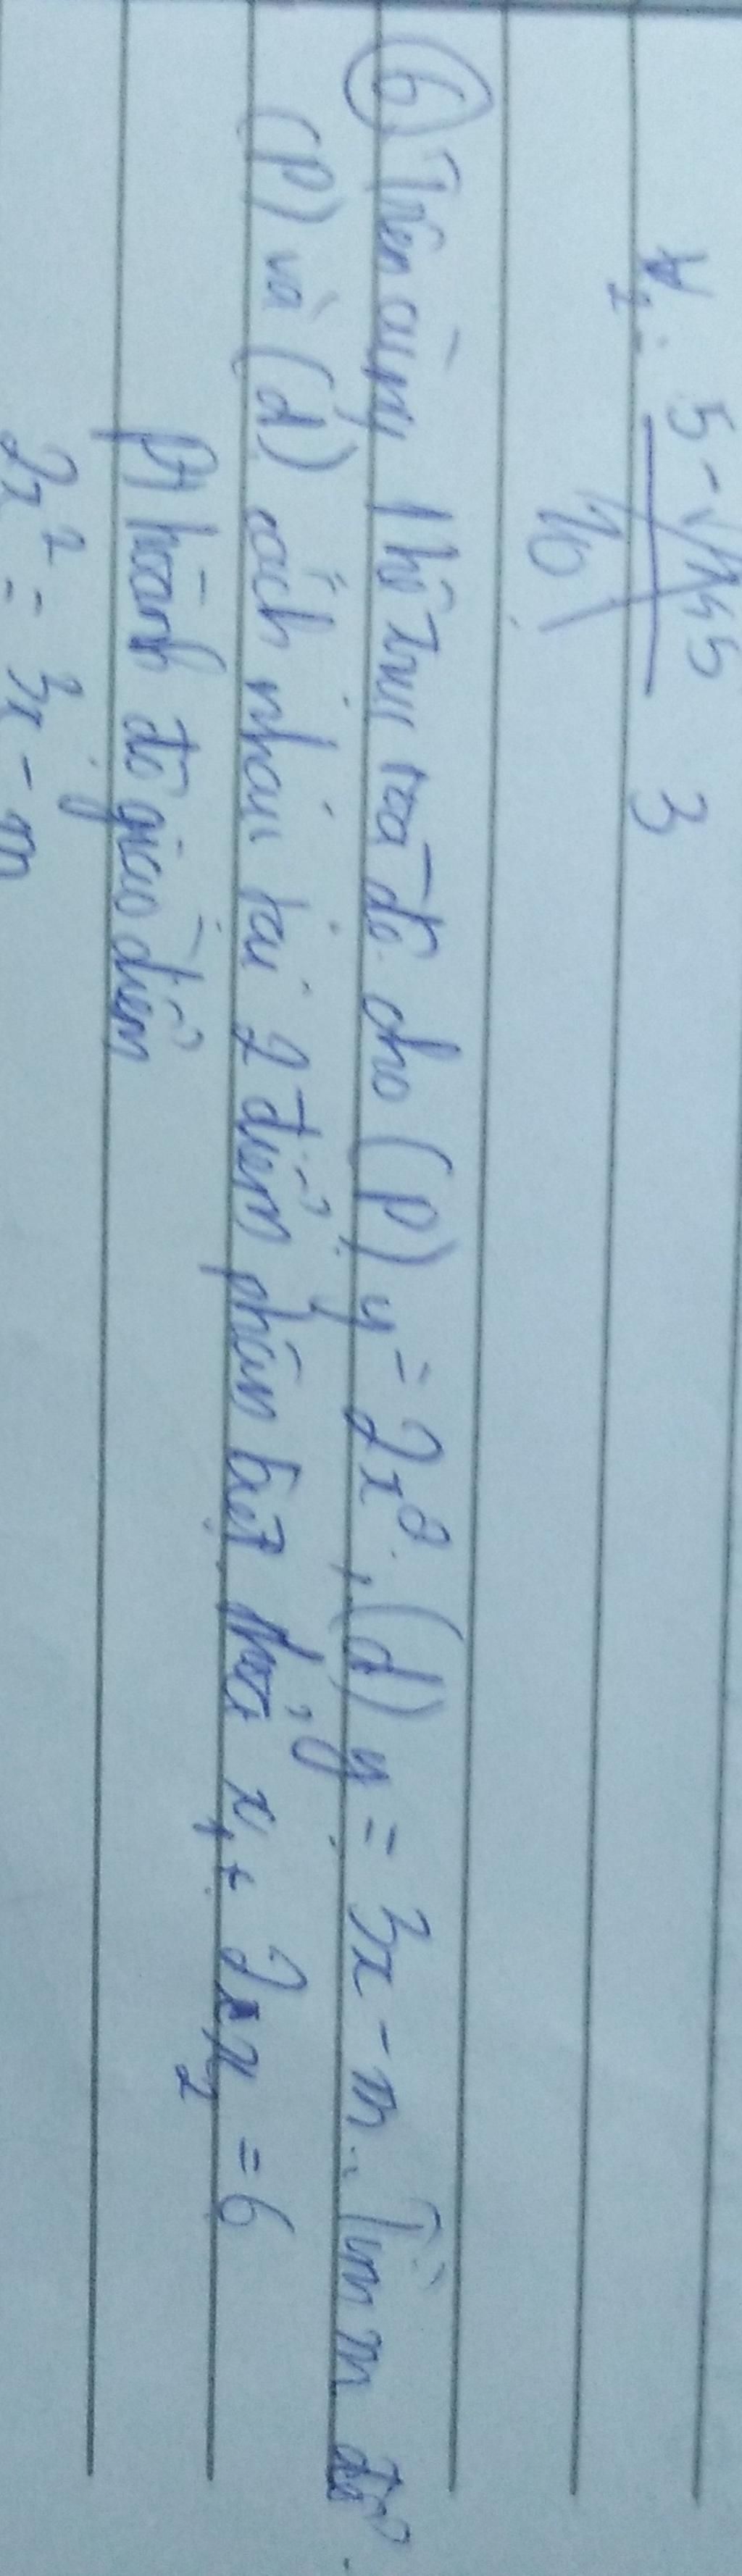 x₂ = 5 - √145 3
16
⑥ Trên cùng 1 hệ trục toạ độ cho (P) y = 2x², (d) y = 3x - m. Tìm m để
(P) và (d) cắt nhau tại 2 điểm phân biệt thoả x₁ + 2x₂ = 6
Pt hoành độ giao điểm
2x² = 3x - m